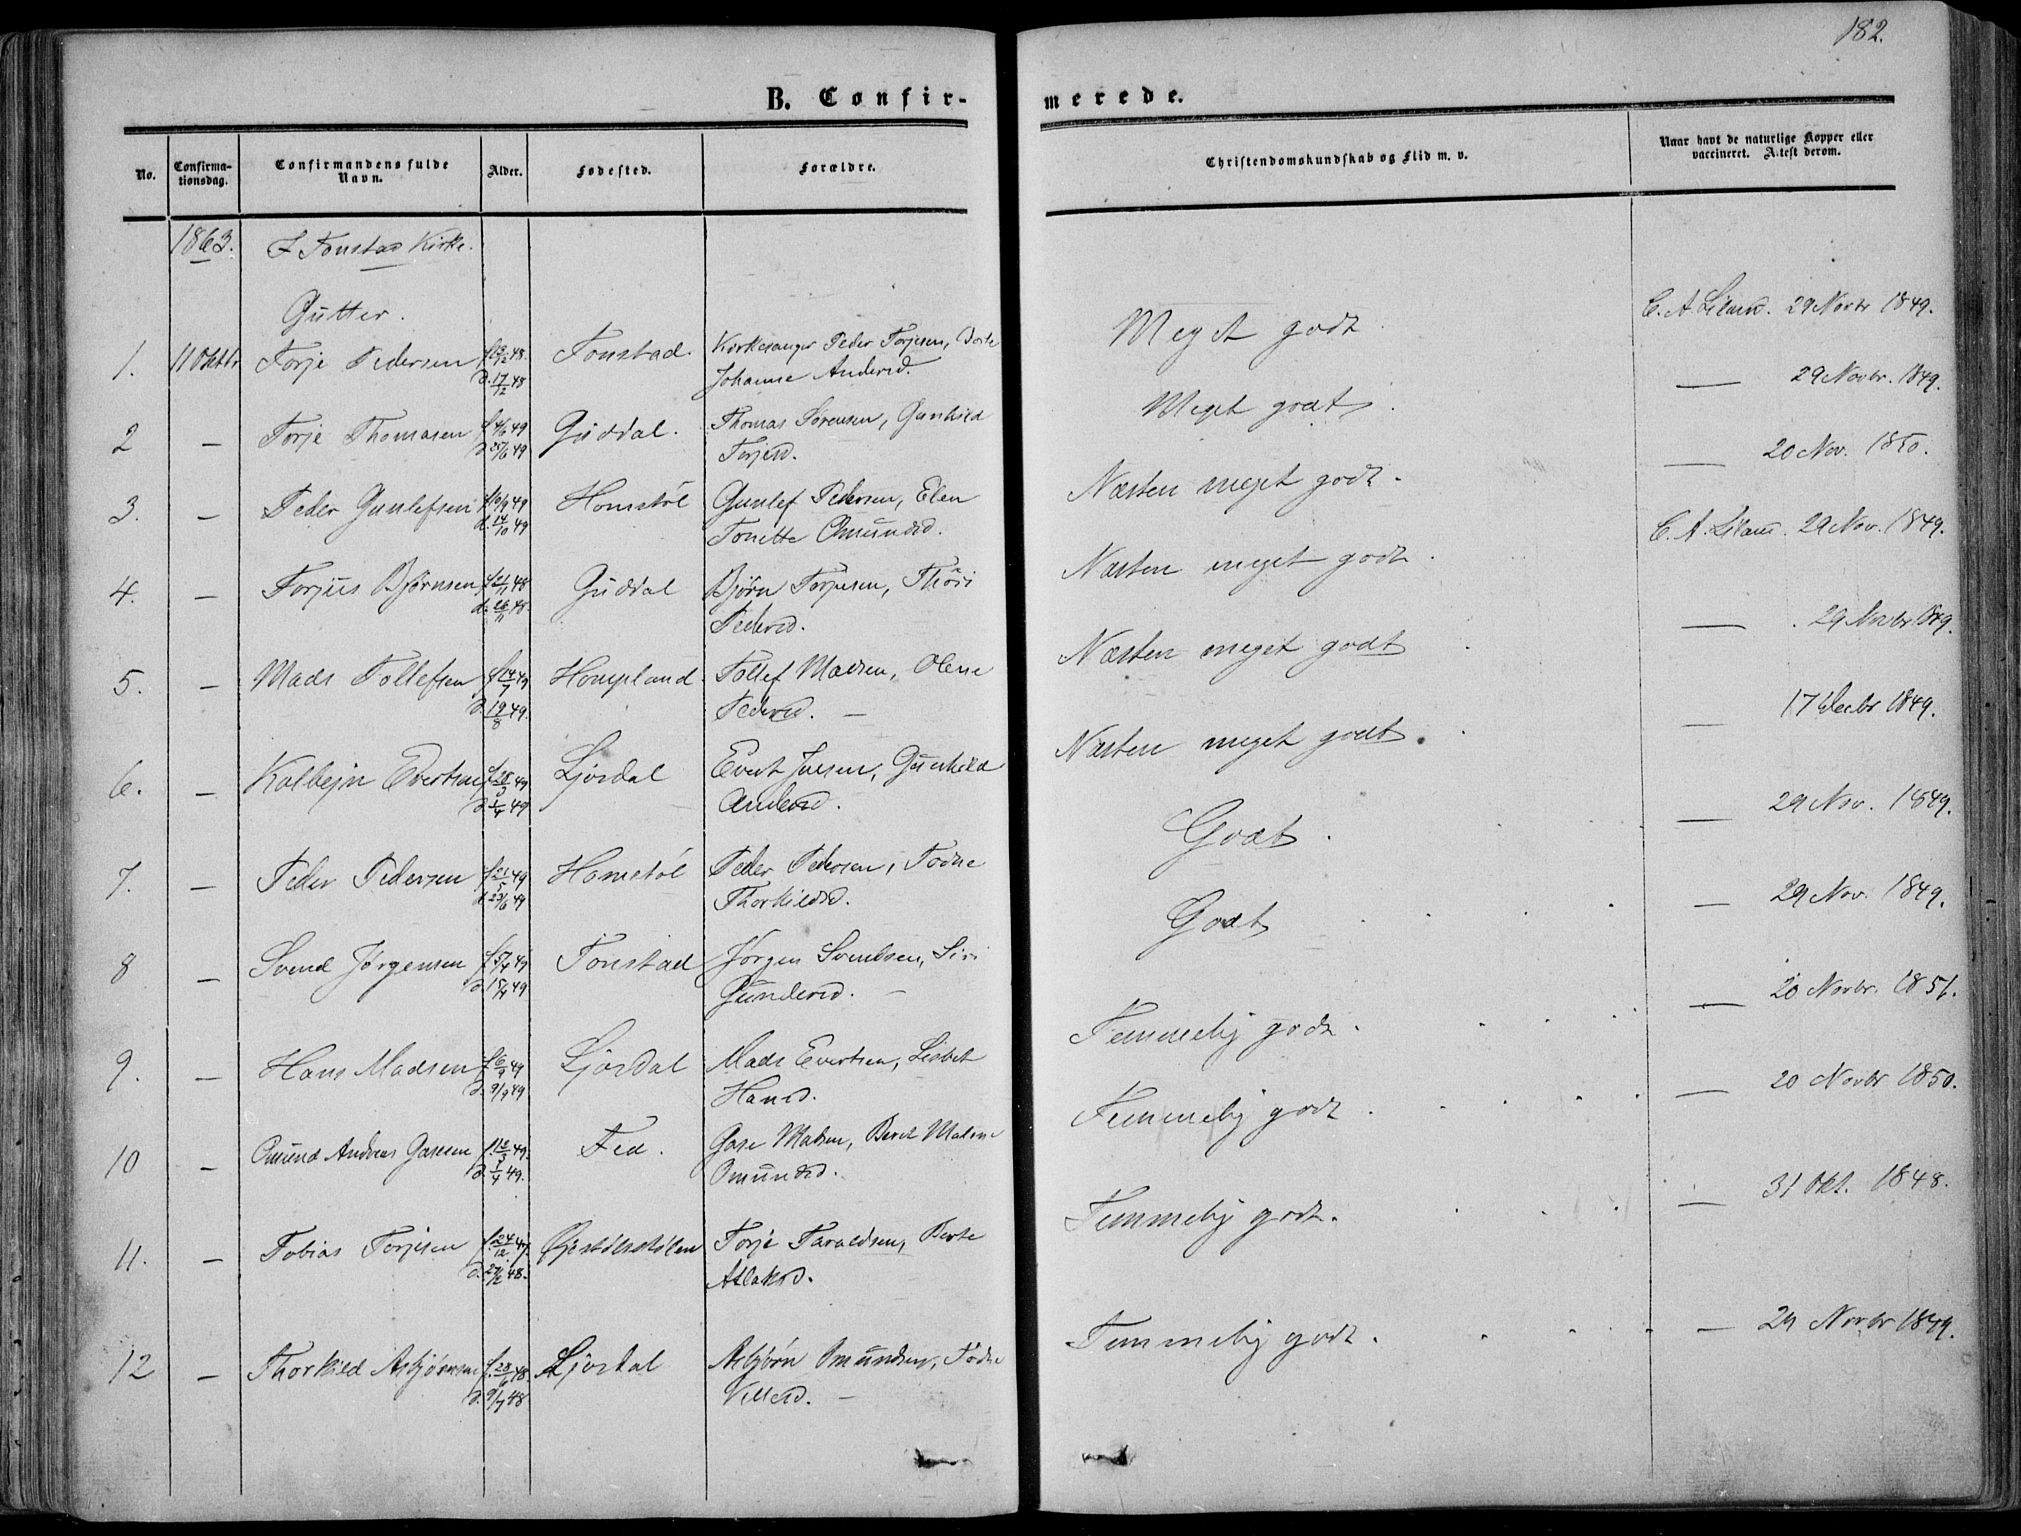 182.
B. Confir- merede.
No. Confirma-tionsdag. Confirmandens fulde Navn. Alder. Fødested. Forældre. Christendomskundskab og Flid m. v. Naar havt de naturlige Kopper eller vaccineret. Attest derom.
1863. I Tonstad Kirke.
Gutter.
1. 11 Oktbr Torje Pedersen Tonstad. Kirkesanger Peder Torjesen, Berte Meget godt. C. A. Liland. 29 Novbr 1849.
d. 17/12 48 Johanne Andersd.
2 — Torje Thomasen f. 4/6 49 Guddal. Thomas Sørensen, Gunhild Meget godt. — 29 Novbr. 1849.
d. 25/6 49 Torjesd.
3. — Peder Gunlefsen f. 10/9 49 Homstøl Gunlef Pedersen, Elen Næsten meget godt. — 20 Nov. 1850.
d. 14/10 49 Tonette Omundsd.
4. — Torjus Bjørnsen f. 21/11 48 Guddal Bjørn Torjusen, Næsten meget godt. C. A. Liland. 29 Nov. 1849.
d. 26/11 48. Pedersd.
5. — Mads Tollefsen f. 14/7 49 Hompland. Tollef Madsen, Olene Næsten meget godt — 29 Novbr 1849.
d. 19/8 49. Pedersd. —
6. — Kolbejn Evertsen f. 28/3 49 Ljosdal Evert Jensen, Gunhild Næsten meget godt. — 17 Decbr 1849.
d. 1/4 49 Andersd.
7. — Peder Pedersen f. 21/5 49 Homstøl Peder Pedersen, Todne Godt. — 29 Nov. 1849.
d. 23/6 49 Thorkildsd.
8 — Svend Jørgensen f. 5/4 49 Tonstad Jørgen Svendsen, Siri Godt — 29 Nov. 1849.
d. 15/4 49 Gundersd. —
9. — Hans Madsen f. 6/9 49 Ljosdal Mads Evertsen, Lisbet Temmelig godt. — 20 Novbr. 1851.
d. 9/9 49 Hansd.
10 — Omund Andreas Gasesen f. 12/3 49. Fed. Gase Madsen, Berit Malene Temmelig godt. — 20 Novbr 1850.
d. 1/4 49. Omundsd.
11. — Tobias Torjesen Torje Taraldsen, Berte Temmelig godt. — 31 Okt. 1848.
Aslaksd.
12 — Thorkild Asbjørnsen f. 28/6 48. Ljosdal Asbjørn Omundsen, Todne Temmelig godt. — 29 Novbr 1849.
d. 9/7 48 —